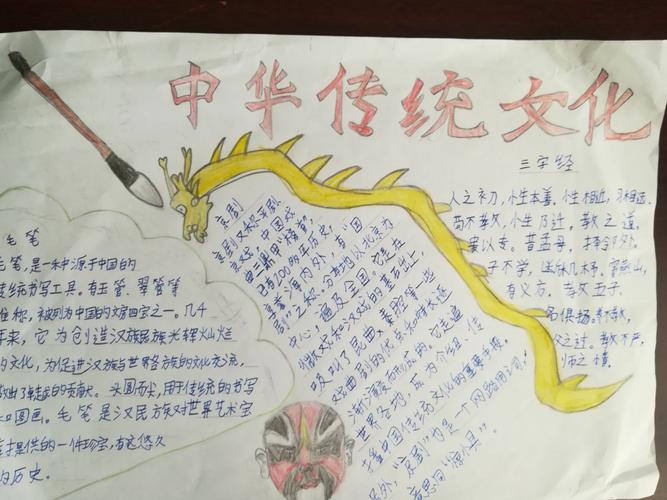 中华传统文化
毛笔
毛笔,是一种源于中国的
传统书写工具。有玉管、翠管等
雅称,被列为中国的文房四宝之一。几千
年来,它为创造汉族民族光辉灿烂
的文化,为促进汉族与世界各族的文化交流,
做出了卓越的贡献。头圆而尖,用于传统的书写
和图画。毛笔是汉民族对世界艺术宝
库提供的一件珍宝,有着悠久
的历史。
京剧
京剧又称平剧
京戏,中国戏
曲三鼎甲"榜首",
已有100多年历史,
享着海内外,有"国
剧"之称。分布地以北京为
中心,遍及全国。它是在
徽戏和汉戏的基础上,
吸收了昆曲、秦腔等一些
戏曲剧的优点和特长逐
渐演变而成的。它走遍
世界各地,成为介绍、传
播中国传统文化的重要手段。
另外,"京剧"也是一个网络用词,
意思同"惊惧"。
三字经
人之初,性本善。性相近,习相远。
苟不教,性乃迁。教之道,
贵以专。昔孟母,择邻处。
子不学,断机杼。窦燕山,
有义方。教五子,
名俱扬。养不教,
父之过。教不严,
师之惰。